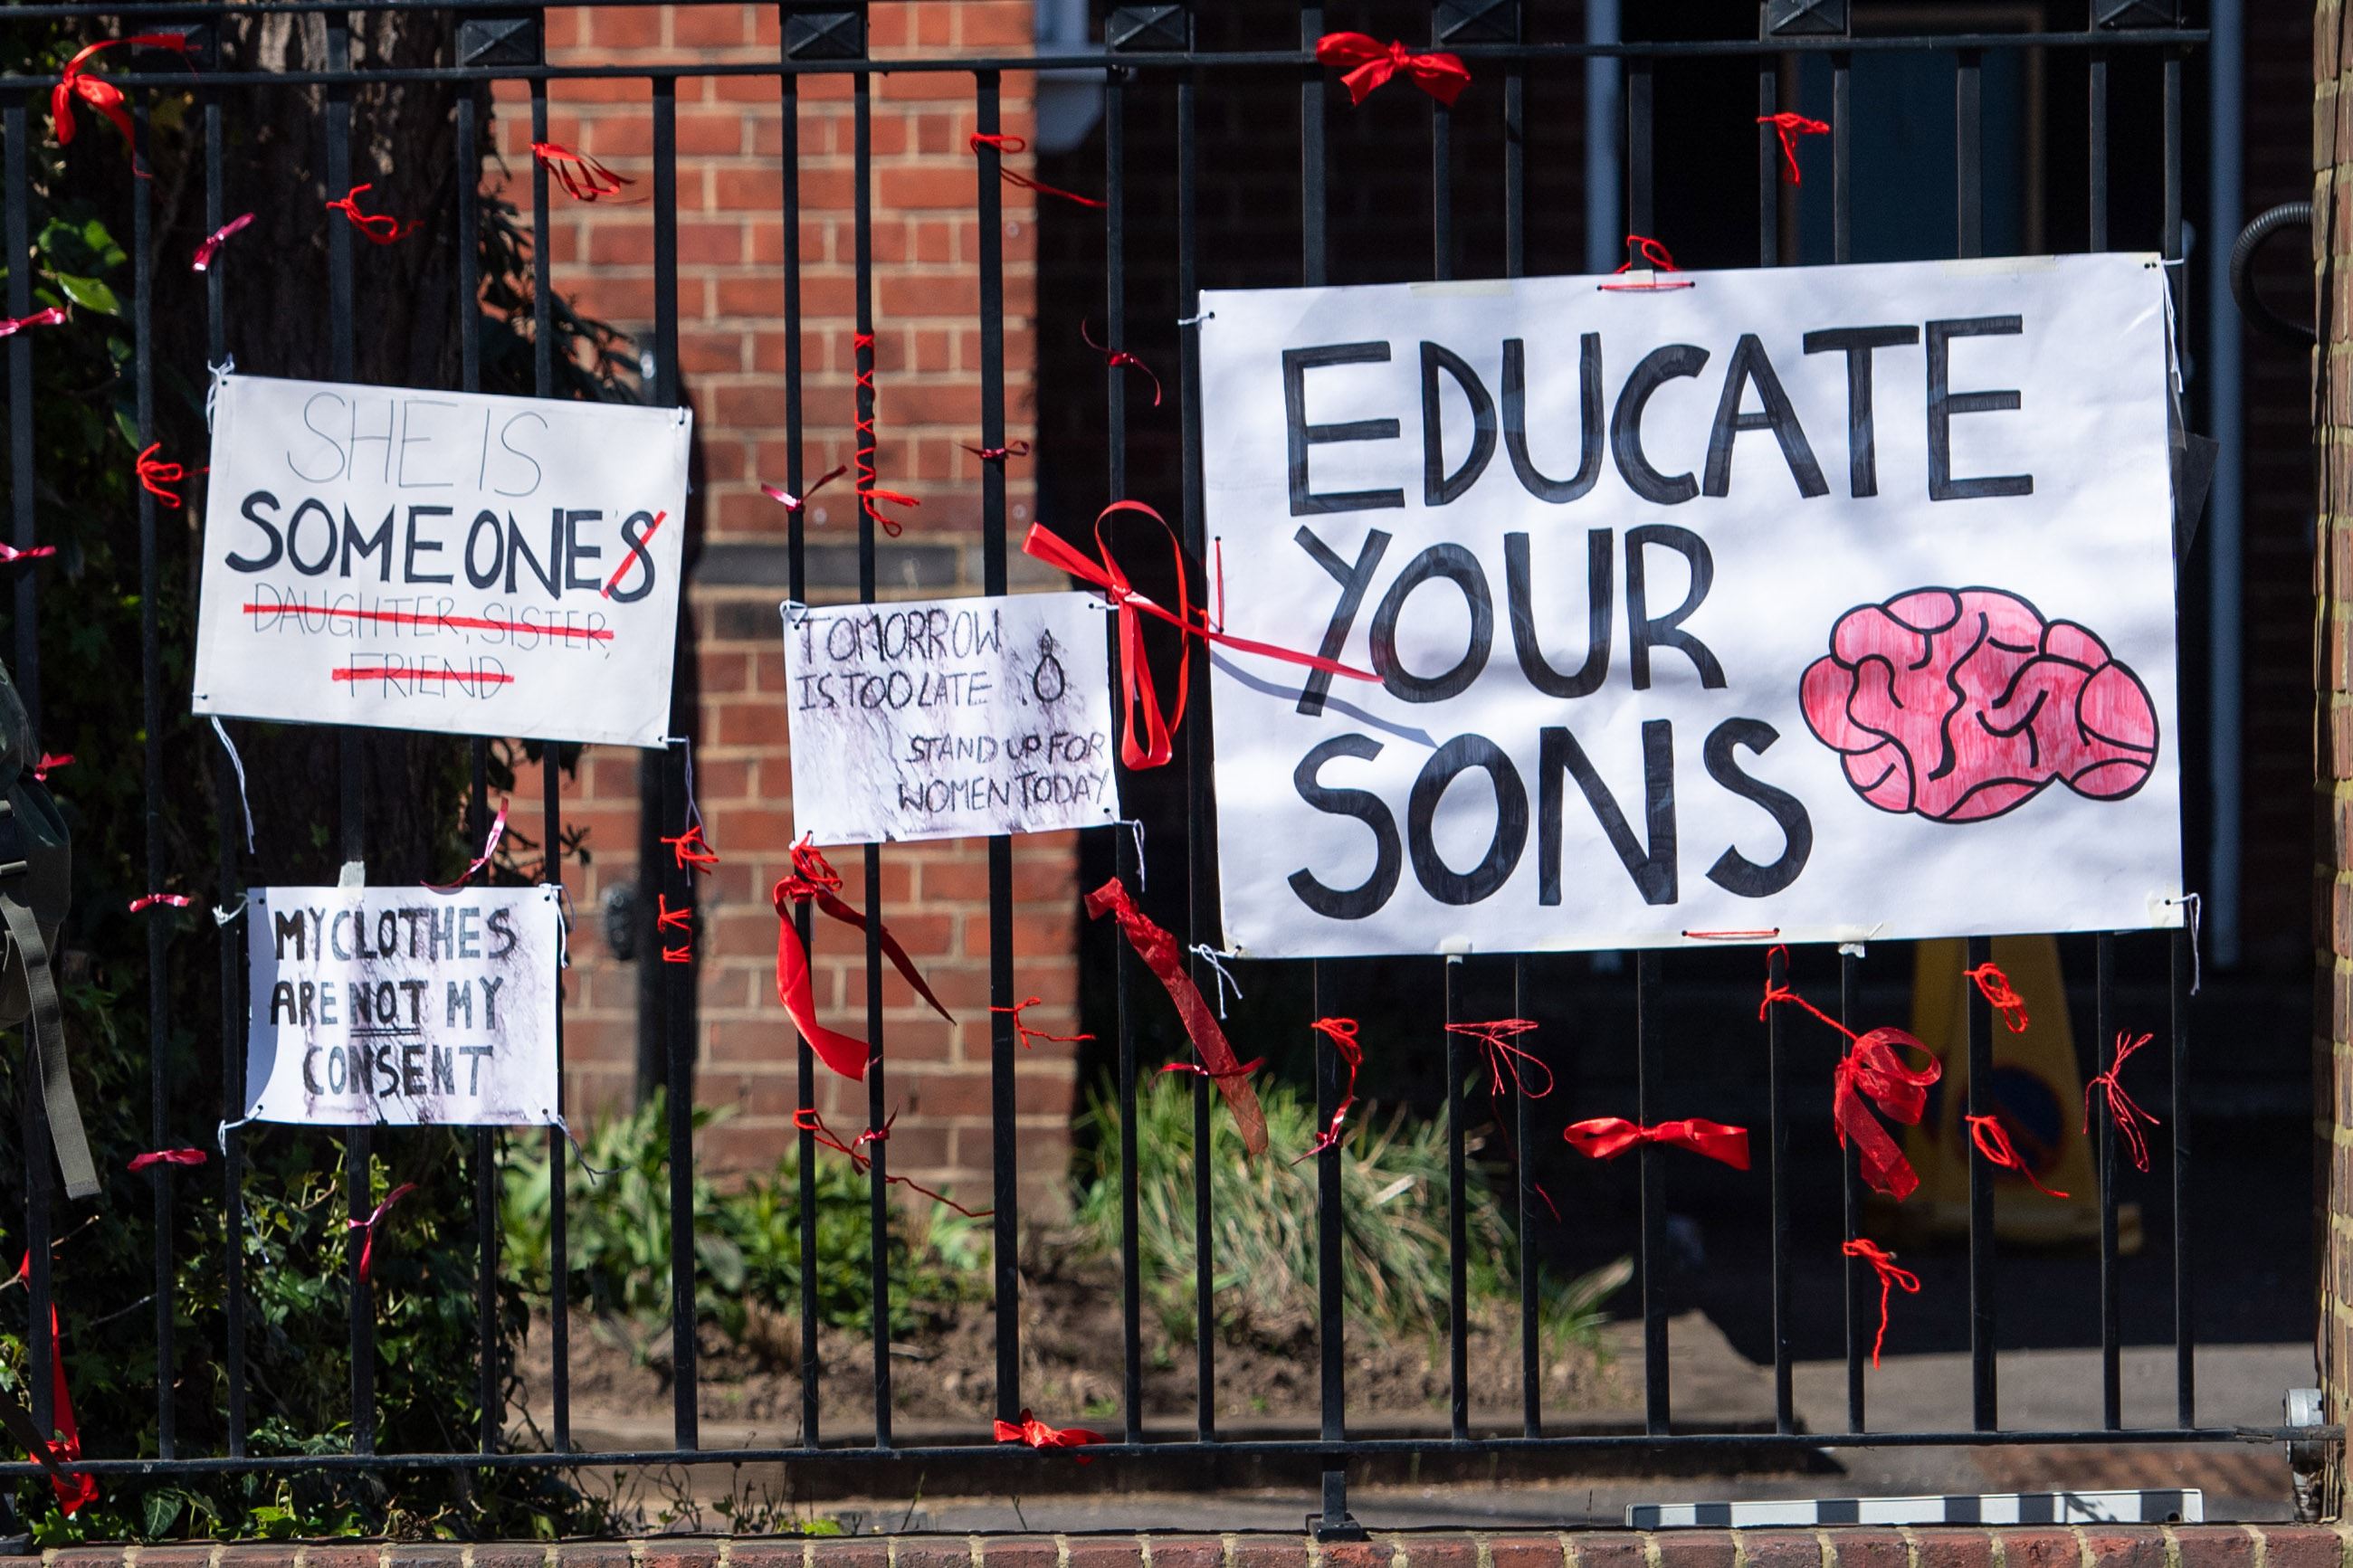 SHE IS
SOMEONE'S
DAUGHTER, SISTER,
FRIEND
MY CLOTHES
ARE NOT MY
CONSENT
TOMORROW
IS TOO LATE
STAND UP FOR
WOMEN TODAY
EDUCATE
YOUR
SONS